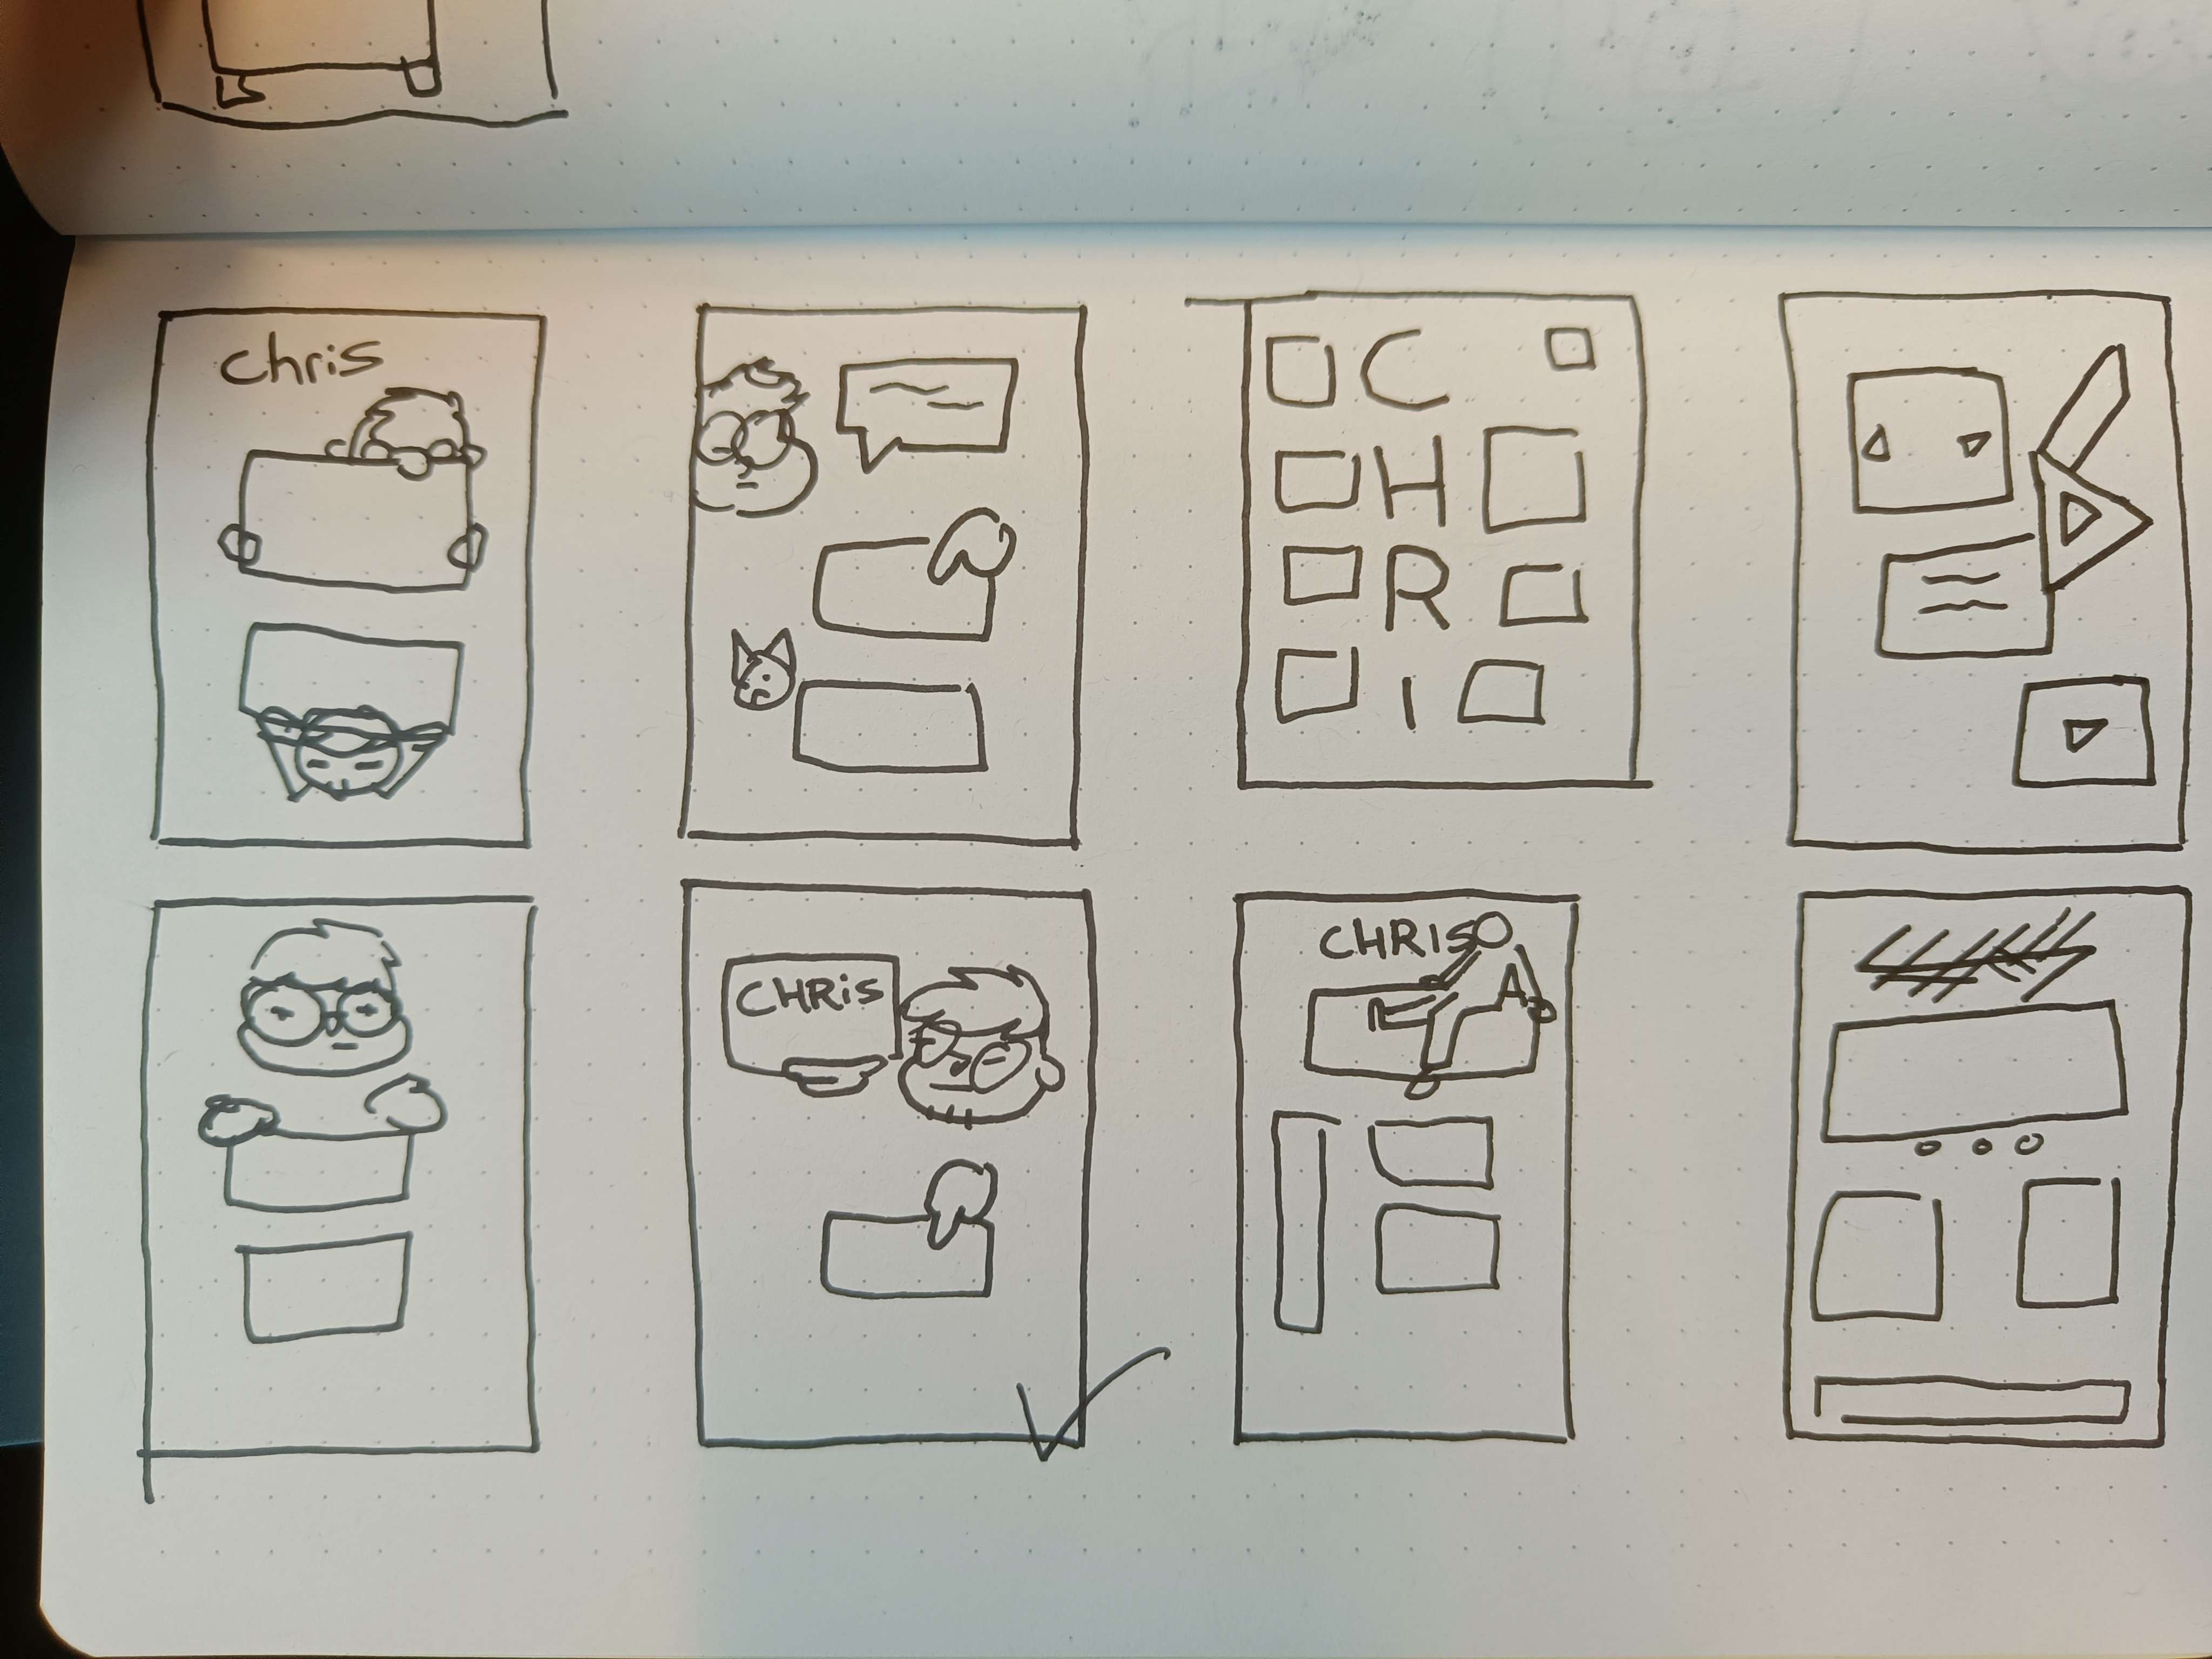 Chris
C
H
R
I
CHRiS
CHRIS
A